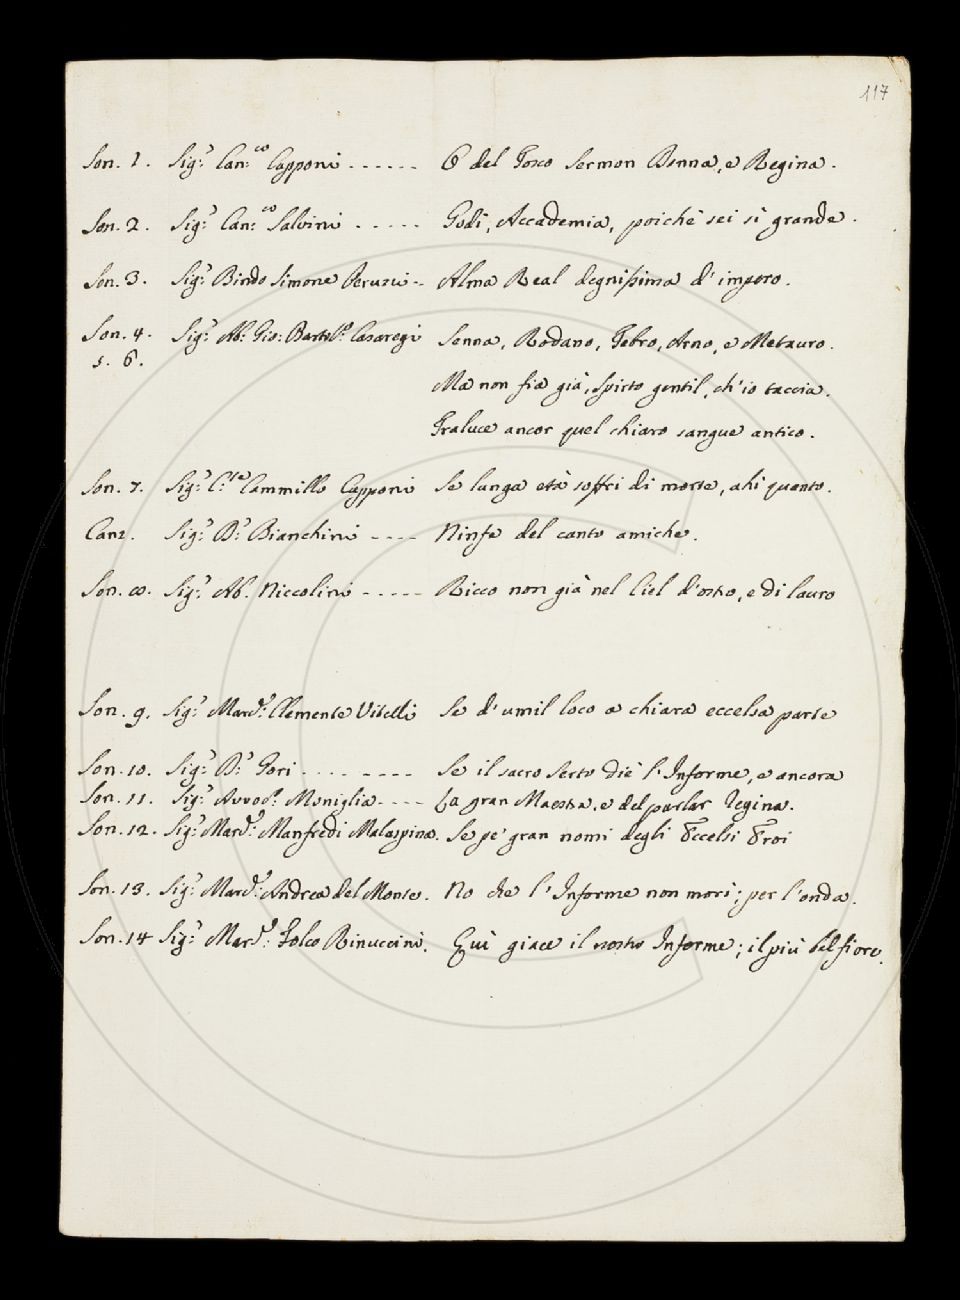 117
Son. 1. Sig.r Can.co Capponi - - - - - - O del Tosco sermon Donna, e Regina.
Son. 2. Sig.r Can.co Salvini - - - - - Godi, Accademia, poichè sei sì grande.
Son. 3. Sig.r Bindo Simone Peruzzi - - Alma Real degnissima d' impero.
Son. 4. Sig.r Ab.e Gio: Bartol.o Casaregi Senna, Rodano, Tebro, Arno, e Metauro.
5. 6.
Ma non fia già, Spirto gentil, ch' io taccia.
Traluce ancor quel chiaro sangue antico.
Son. 7. Sig.r C.te Cammillo Capponi Se lunga età soffri di morte, ahi quanto.
Canz. Sig.r D.r Bianchini - - - - Ninfe del canto amiche.
Son. 8. Sig.r Ab. Niccolini - - - - - Ricco non già nel Ciel d'ostro, e di lauro
Son. 9. Sig.r March.e Clemente Vitelli Se d' umil loco a chiara eccelsa parte
Son. 10. Sig.r D.r Gori - - - - - - - - Se il sacro serto diè l' Informe, e ancora
Son. 11. Sig.r Avvoc.o Moniglia - - - - La gran Maestra, e del parlar Regina.
Son. 12. Sig.r March.e Manfredi Malaspina. Se pe' gran nomi degli Eccelsi Eroi
Son. 13. Sig.r March.e Andrea del Monte. No che l' Informe non morì; per l'onda.
Son. 14 Sig.r March.e Folco Rinuccini. Quì giace il nostro Informe; il più bel fiore.